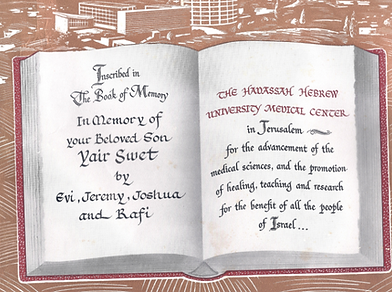 Inscribed in
The Book of Memory
In Memory of
your Beloved Son
Yair Swet
by
Evi, Jeremy, Joshua
and Rafi
THE HADASSAH HEBREW
UNIVERSITY MEDICAL CENTER
in Jerusalem
for the advancement of the
medical sciences, and the promotion
of healing, teaching and research
for the benefit of all the people
of Israel...